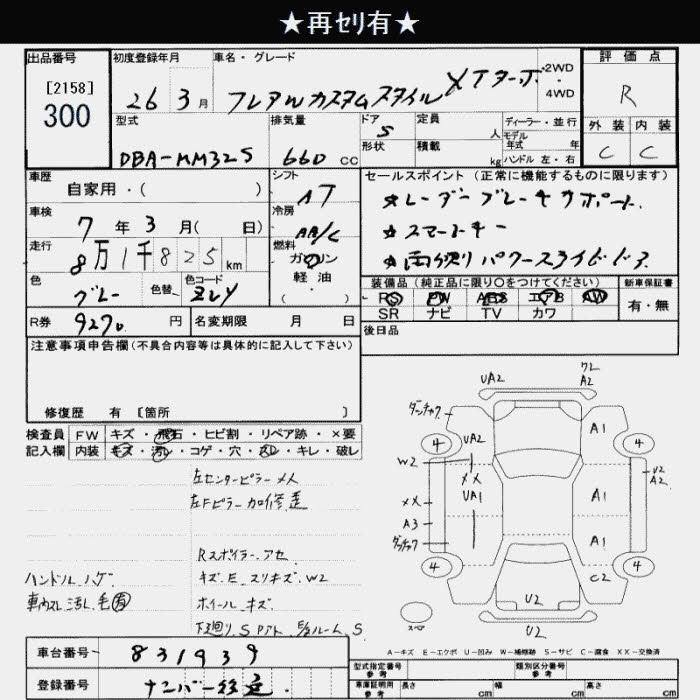 ★再セリ有★
出品番号
[2158]
300
初度登録年月
26 3月
車名・グレード
フレアWカスタムスタイル XTターボ
2WD
4WD
評価点
R
型式
DBA-MM32S
排気量
660 cc
ドア
5
形状
定員
人
積載
kg
ディーラー・並行
モデル
年式 年
ハンドル 左・右
外装
内装
C
C
車歴
自家用・( )
シフト
AT
セールスポイント(正常に機能するものに限ります)
★レーダーブレーキサポート
★スマートキー
★両側パワースライドドア
車検
7年 3月( 日)
冷房
AA/C
走行
8万1千825km
燃料
ガソリン
軽油
( )
色
グレー
色替
色コード
ZLY
装備品(純正品に限り○をつけてください)
PS PW ABS エアB AW
SR ナビ TV カワ
新車保証書
有・無
R券
9270 円
名変期限 月 日
後日品
注意事項申告欄(不具合内容等は具体的に記入して下さい)
修復歴 有 [箇所 ]
検査員
記入欄
FW キズ・飛石・ヒビ割・リペア跡・×要
内装 キズ・汚レ・コゲ・穴・スレ・キレ・破レ
左センターピラーメA
左Fピラー加修歪
Rスポイラーアセ
ハンドル ハゲ
キズ、E、スリキズ、W2
車内スレ汚レ、毛有
ホイールキズ
下廻り、S
UA2
ワレ
A2
4
UA2
A1
4
W2
XX
UA1
U2
A2
XX
A1
A3
A1
4
C2
4
スペア
U2
U2
A-キズ E-エクボ U-凹み W-補修跡 S-サビ C-腐食 XX-交換済
車台番号
831939
登録番号
ナンバー後送
型式指定番号
参考
類別区分番号
参考
車庫証明用
参考
長さ cm
幅 cm
高さ cm